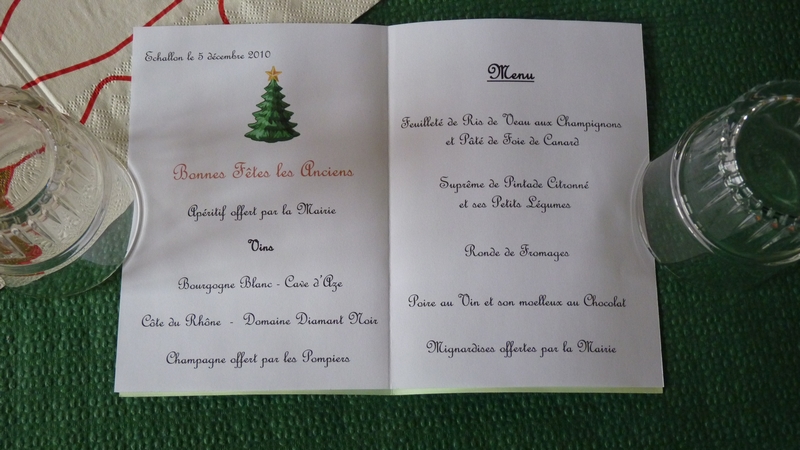 Echallon le 5 décembre 2010
Bonnes Fêtes les Anciens
Apéritif offert par la Mairie
Vins
Bourgogne Blanc - Cave d'Aze
Côte du Rhône - Domaine Diamant Noir
Champagne offert par les Pompiers
Menu
Feuilleté de Ris de Veau aux Champignons
et Pâté de Foie de Canard
Suprême de Pintade Citronné
et ses Petits Légumes
Ronde de Fromages
Poire au Vin et son moelleux au Chocolat
Mignardises offertes par la Mairie